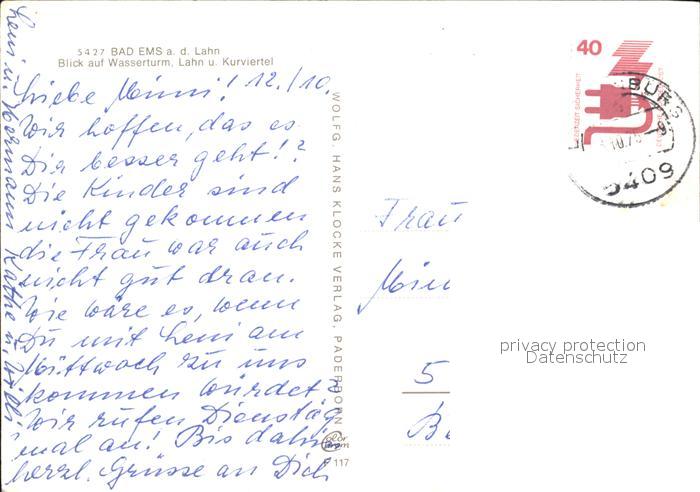 5427 BAD EMS a. d. Lahn
Blick auf Wasserturm, Lahn u. Kurviertel
Liebe Minni! 12./10.
Wir hoffen, das es
Dir besser geht!?
Die Kinder sind
nicht gekommen
die Frau war auch
nicht gut dran.
Wie wäre es, wenn
Du mit Leni am
Mittwoch zu uns
kommen würdet?
Wir rufen Dienstag
mal an! Bis dahin
herzl. Grüsse an Dich
Leni u. Hermann Käthe u. Willi
WOLFG. HANS KLOCKE VERLAG, PADERBORN
117
40
BURG
5409
Frau
Min
5
privacy protection
Datenschutz